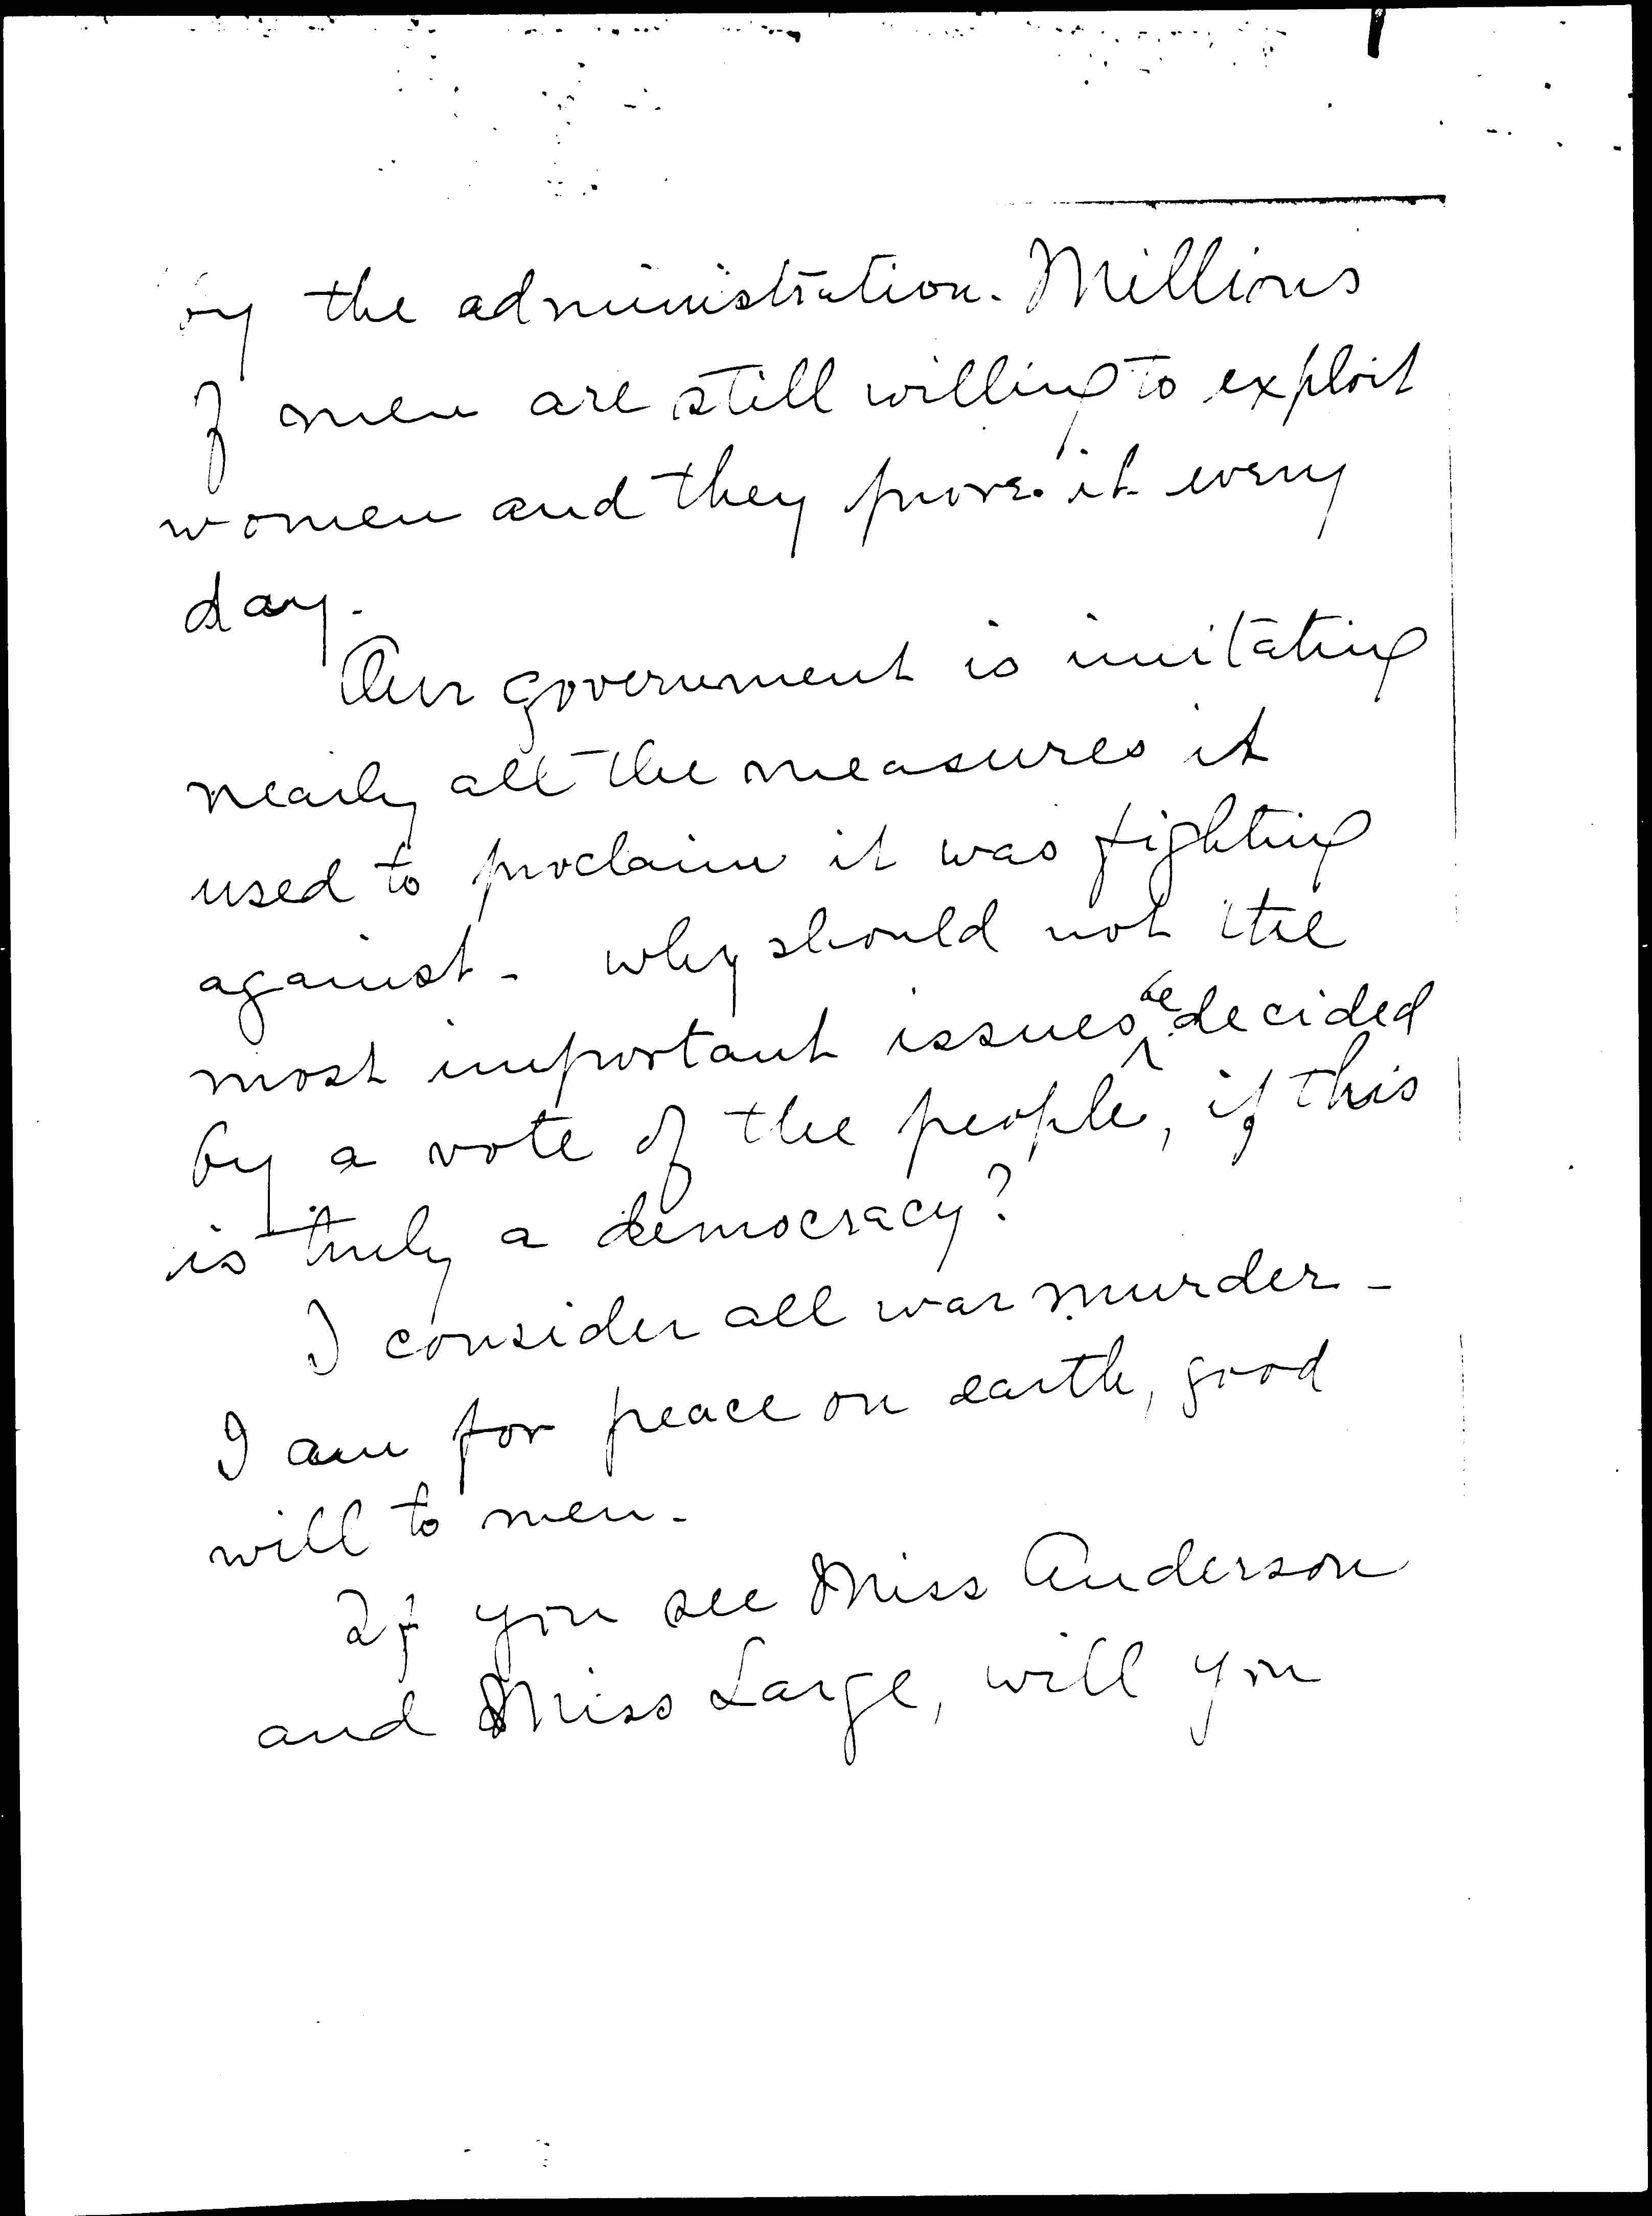 by the administration. Millions
of men are still willing to exploit
women and they prove it every
day.
Our government is imitating
nearly all the measures it
used to proclaim it was fighting
against - why should not the
most important issues be decided
by a vote of the people, if this
is truly a democracy?
I consider all war murder -
I am for peace on earth, good
will to men.
If you see Miss Anderson
and Miss Large, will you